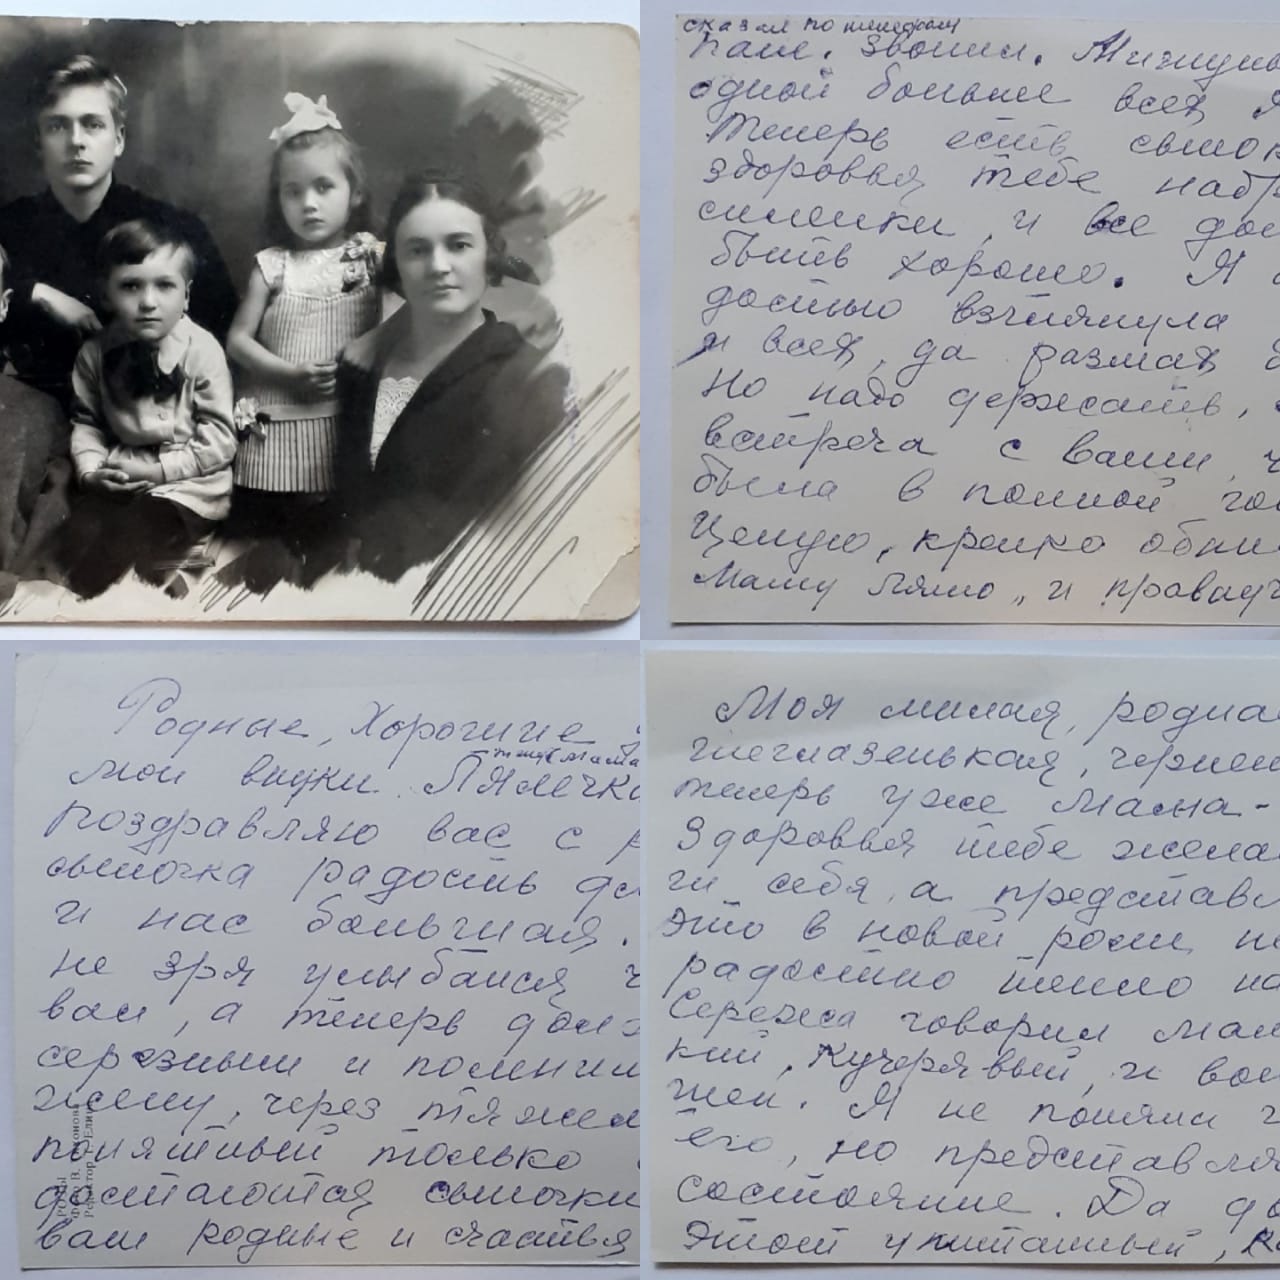 сказал по телефону
папе. Звонил. Мизуно
одной больше всех я
теперь есть сынок
здоровья тебе набр
силенки, и все дол
быть хорошо. Я
достью взглянула
и всех, да размах
Но надо держать,
встреча с вами, ч
была в полной го
Целую, крепко обни
Маму Лялю, и праваду
Родные, Хорошие
тещу (мама
мои внуки. Лялечка
поздравляю вас с р
сыночка радость дл
и нас большая.
не зря улыбался ч
вам, а теперь долж
серезными и помнил
жену, через тяжел
понятный только
достаются сыночки
вам родные и счастья
РОЗЫ
Фото В. Тихонова
Редактор Т. Елин
Моя милая, родна
теглазенькая, чернень
теперь уже Мама-
Здоровья тебе жела
ги себя, а представл
это в новой роли, но
радостно тепло на
Сережа говорил мал
кий, Кучерявый, и во
жен. Я не поняла
его, но представля
состояние. Да до
этот упитанный, к